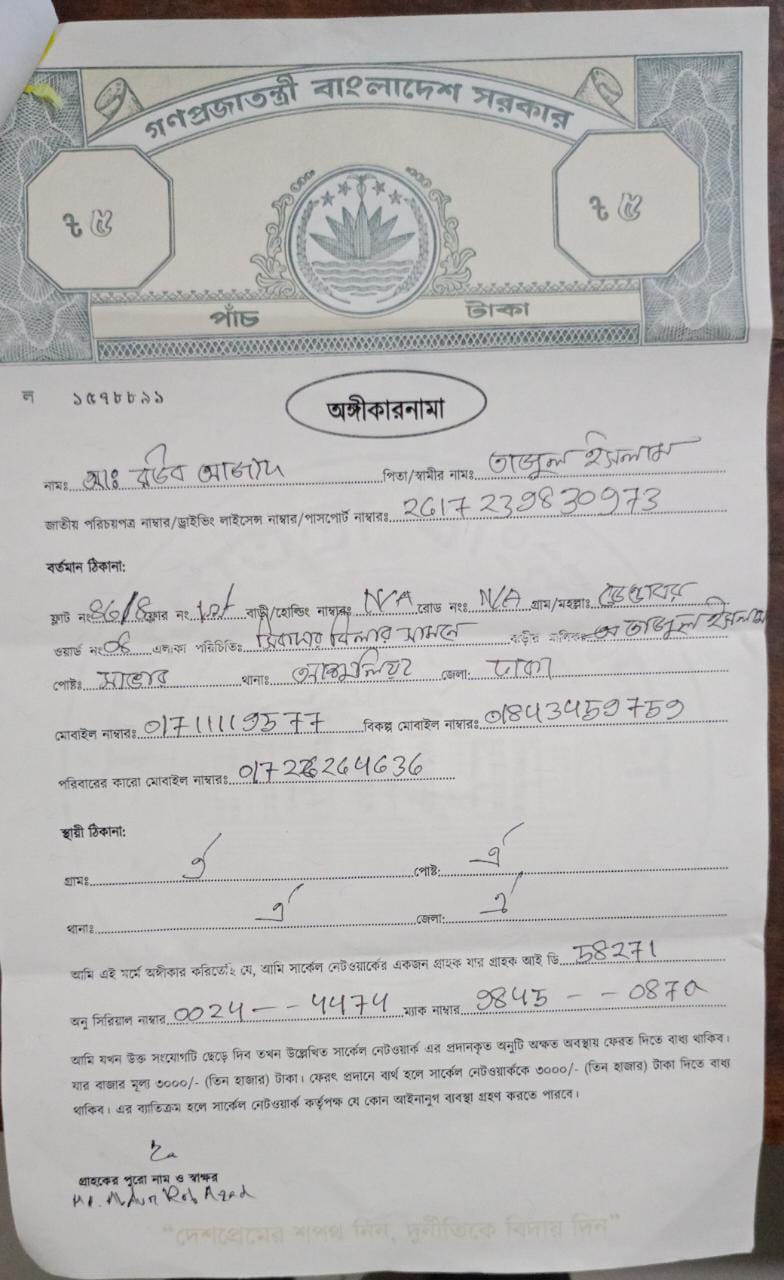 গণপ্রজাতন্ত্রী বাংলাদেশ সরকার
৳ ৫ ৳ ৫
পাঁচ টাকা
ল ১৫৭৮৮৯১
অঙ্গীকারনামা
নামঃ আঃ রউব আজাদ পিতা/স্বামীর নামঃ তাজুল ইসলাম
জাতীয় পরিচয়পত্র নাম্বার/ড্রাইভিং লাইসেন্স নাম্বার/পাসপোর্ট নাম্বারঃ 2617239830973
বর্তমান ঠিকানা:
ফ্লাট নং ফ্লোর নং 1st বাড়ী/হোল্ডিং নাম্বারঃ N/A রোড নংঃ N/A গ্রাম/মহল্লাঃ
ওয়ার্ড নং 08 এলাকা পরিচিতিঃ সামনে বাড়ীর মালিকঃ তাজুল ইসলাম
পোষ্টঃ সাভার থানাঃ আশুলিয়া জেলা: ঢাকা
মোবাইল নাম্বারঃ 01711119577 বিকল্প মোবাইল নাম্বারঃ 01843459759
পরিবারের কারো মোবাইল নাম্বারঃ
স্থায়ী ঠিকানা:
গ্রামঃ ঐ পোষ্ট: ঐ
থানাঃ ঐ জেলা: ঐ
আমি এই মর্মে অঙ্গীকার করিতেছি যে, আমি সার্কেল নেটওয়ার্কের একজন গ্রাহক যার গ্রাহক আই ডি 58271
অনু সিরিয়াল নাম্বার 0024 - - 4474 ম্যাক নাম্বার 9845 - - 0870
আমি যখন উক্ত সংযোগটি ছেড়ে দিব তখন উল্লেখিত সার্কেল নেটওয়ার্ক এর প্রদানকৃত অনুটি অক্ষত অবস্থায় ফেরত দিতে বাধ্য থাকিব।
যার বাজার মূল্য ৩০০০/- (তিন হাজার) টাকা। ফেরৎ প্রদানে ব্যর্থ হলে সার্কেল নেটওয়ার্ককে ৩০০০/- (তিন হাজার) টাকা দিতে বাধ্য
থাকিব। এর ব্যতিক্রম হলে সার্কেল নেটওয়ার্ক কর্তৃপক্ষ যে কোন আইনানুগ ব্যবস্থা গ্রহণ করতে পারবে।
গ্রাহকের পুরো নাম ও স্বাক্ষর
Rob Azad
“দেশপ্রেমের শপথ নিন, দুর্নীতিকে বিদায় দিন”